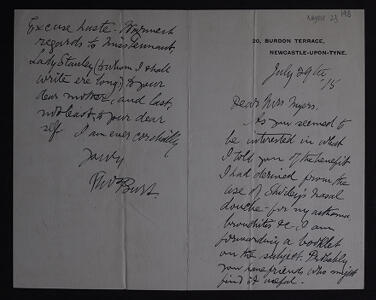 Excuse haste. Warmest
regards to Miss Tennant,
Lady Stanley (to whom I shall
write ere long) to your
dear mother, and last,
not least, to your dear
self. I am ever cordially
yours,
Thos Burt.
20, BURDON TERRACE,
NEWCASTLE-UPON-TYNE.
July 29th
/15
Dear Miss Myers,
As you seemed to
be interested in what
I told you of the benefit
I had derived from the
use of nasal
douche for my asthma,
bronchitis &c, I am
forwarding a booklet
on the subject. Probably
you have friends who might
find it useful.